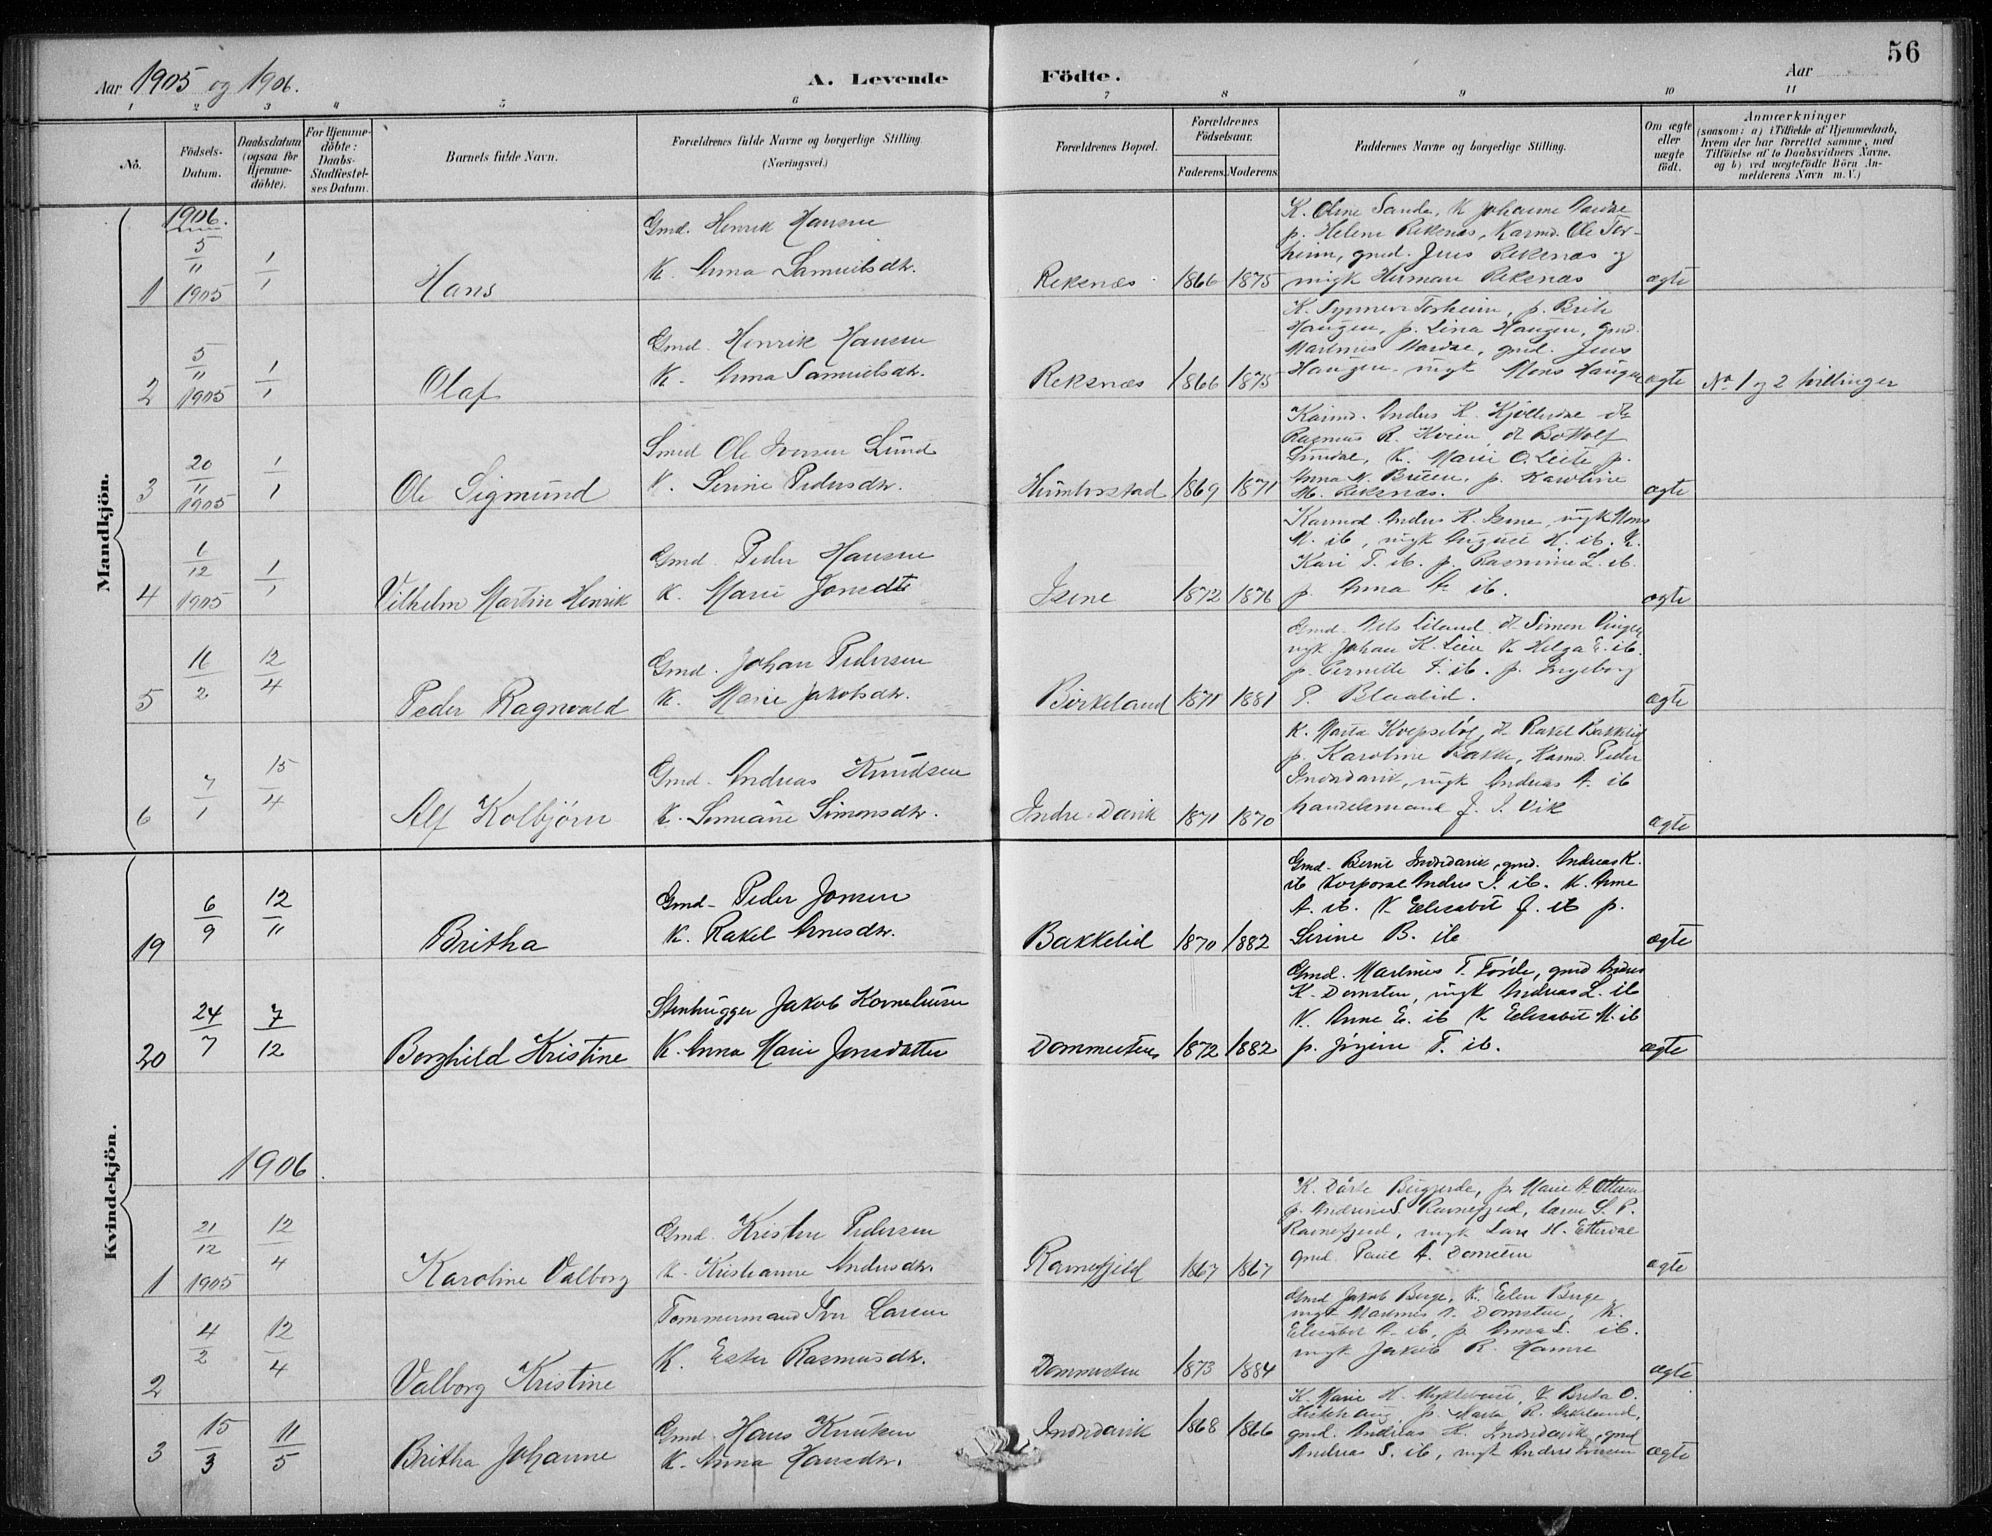 56
Aar 1905 og 1906.
A. Levende Födte.
Aar
1 2 3 4 5 6 7 8 9 10 11
No.
Födsels-Datum.
Daabsdatum (ogsaa for Hjemme-döbte).
For Hjemme-döbte: Daabs-Stadfæstel-ses Datum.
Barnets fulde Navn.
Forældrenes fulde Navne og borgerlige Stilling. (Næringsvei.)
Forældrenes Bopæl.
Forældrenes Födselsaar.
Faderens. Moderens.
Faddernes Navne og borgerlige Stilling.
Om ægte eller uægte födt.
Anmærkninger
(saasom: a) i Tilfælde af Hjemmedaab,
hvem der har forrettet samme, med
Tilföielse af to Daabsvidners Navne,
og b) ved uægtefödte Börn An-
melderens Navn m. V.)
Mandkjön.
1906.
K. Oline Sande, K Johanne Nordal
Gmd. Henrik Hansen
p. Helene Reksnæs, Karmd. Ole Tor-
5/11 1/1
K. Anna Samuelsdtr.
heim, gmd. Jens Reksnæs og
1 1905 Hans Reksnæs 1866 1875 ungk Herman Reksnæs ægte
K. Synneva Torheim, p. Brite
Gmd. Henrik Hansen
Haugen, p. Lina Haugen, gmd.
5/11 1/1
Martinus Nordal, gmd. Jens
K. Anna Samuelsdtr.
2 1905 Olaf Reksnæs 1866 1875 Haugen ungk Mons Haugen ægte No 1 og 2 tvillinger
Karmd. Anders K.
Smed Ole Iversen Lund
Rasmus R.
20/11 1/1
K. Marie O. Leite p.
K. Serine Pedersdtr.
Anna p. Karoline
3 1905 Ole Sigmund 1869 1871 M. Reksnæs. ægte
Karmd. Anders K. Isene, ungk Mons
Gmd. Peder Hansen
M. ib, ungk August M. ib. K.
1/12 1/1
Kari T. ib. p. Rasmine L. ib.
4 1905 Vilhelm Martin Henrik K. Marie Jonsdtr Isene 1872 1876 p. Anna A. ib. ægte
Gmd. Nils Liland, Simon
Gmd. Johan Pedersen
ungk Johan K. K Helga E. ib.
11/2 12/4
p. Pernille ib. p. Ingeborg
5 Peder Ragnvald K. Marie Jakobsdtr. Birkeland 1871 1881 P. Blaalid. ægte
K. Marta Rakel Bakkelid
Gmd. Andreas Knudsen
p. Karoline Bakke, Karmd. Peder
7/1 15/4
Indredavik, ungk Andreas A. ib
6 Alf Kolbjörn K. Simonsdtr. Indre-Davik 1871 1870 handelsmand J. J. Vik ægte
Kvindekjön.
Gmd. Bernt Indredavik, gmd. Andreas K.
Gmd. Peder Jonsen
ib Korporal Andreas S. ib. K. Anne
6/9 12/11
A. ib. K Elisabet J. ib p.
19 Britha K. Rakel Arnesdtr. Bakkelid 1870 1882 Serine B. ib ægte
Gmd. Martinus T. Förde, gmd Anders
Stenhugger Jakob Korneliusen
K. Domsten, ungk Andreas L. ib
24/7 7/12
K. Anne E. ib K Elisabet M. ib
20 Borghild Kristine K. Anna Marie Jonsdatter Dommesten 1872 1882 p. Jörgine T. ib. ægte
1906.
K. Dårte p. Marie A.
Gmd. Kristen Pedersen
p. Andrine S. Ravnefjeld, S. P.
21/12 12/4
Ravnefjeld, ungk Lars H.
1 1905 Karoline Valborg K. Kristianne Andersdtr. Ravnefjeld 1867 1867 gmd. Paul A. Domsten ægte
Gmd Jakob Berge, K. Elen Berge
Tømmermand Iver Larsen
ungk Martinus Domsten, K.
4/2 12/4
Elisabet A. ib, p. Anna L. ib.
2 Valborg Kristine K. Ester Rasmusdtr. Dommesten 1873 1884 ungk Jakob R. Hamre ægte
K. Marie H. K Brita O.
Gmd. Hans Knutsen
p. Marta R.
15/3 11/5
gmd. Andreas K. Indredavik, gmd
3 Britha Johanne K. Anna Hansdtr. Indredavik 1868 1866 Andreas S. ib, ungk ægte